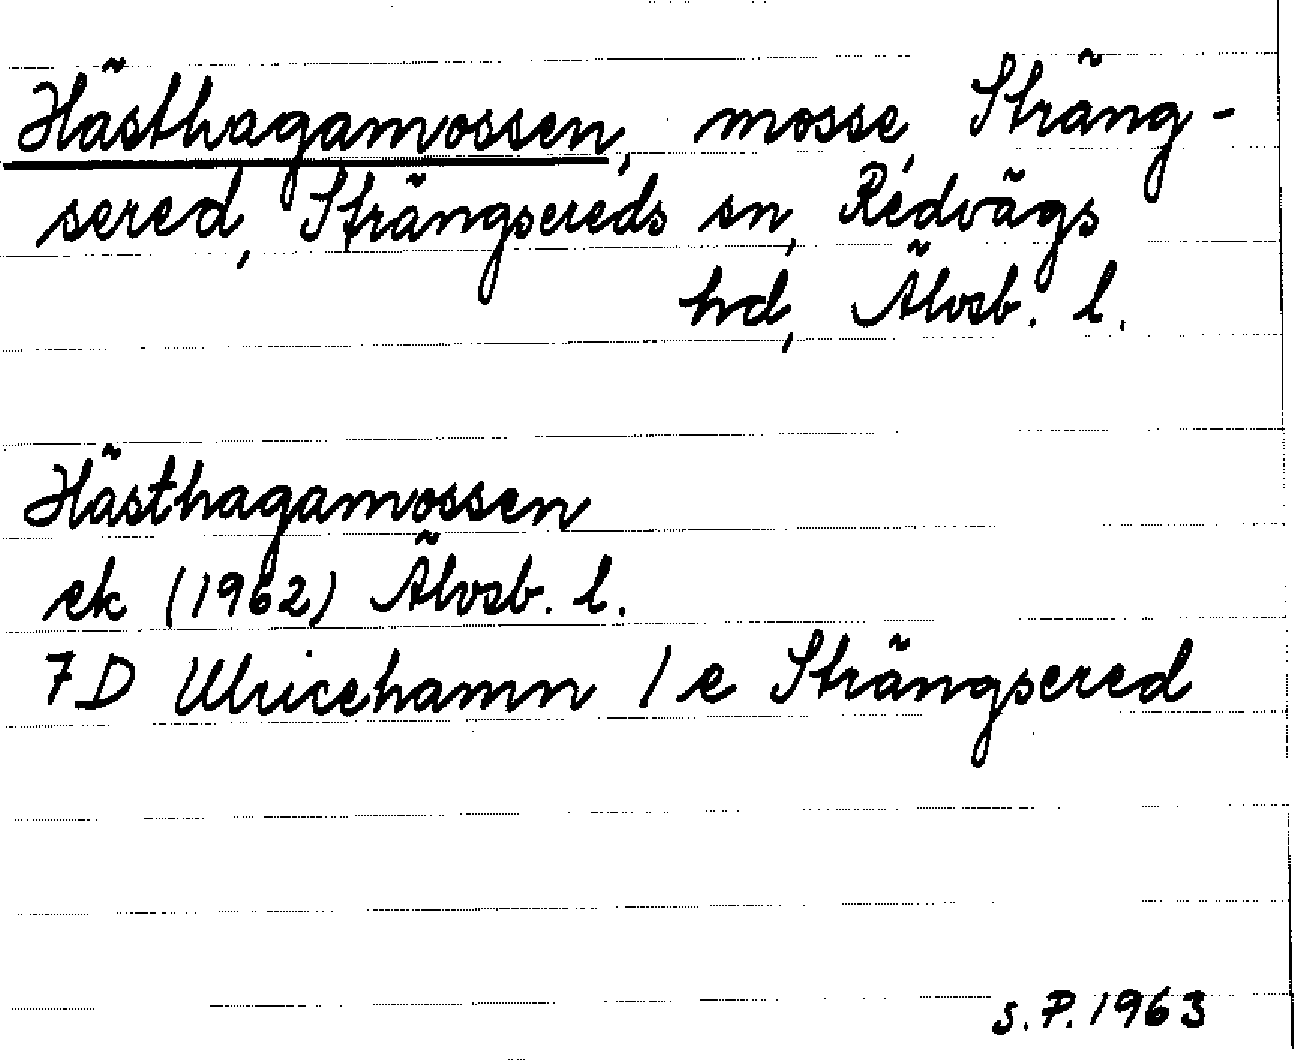 Hästhagamossen, mosse, Sträng-
sered, Strängsereds sn, Redvägs
hd, Älvsb. l.
Hästhagamossen
ek (1962) Älvsb. l.
7D Ulricehamn 1e Strängsered
S.P. 1963